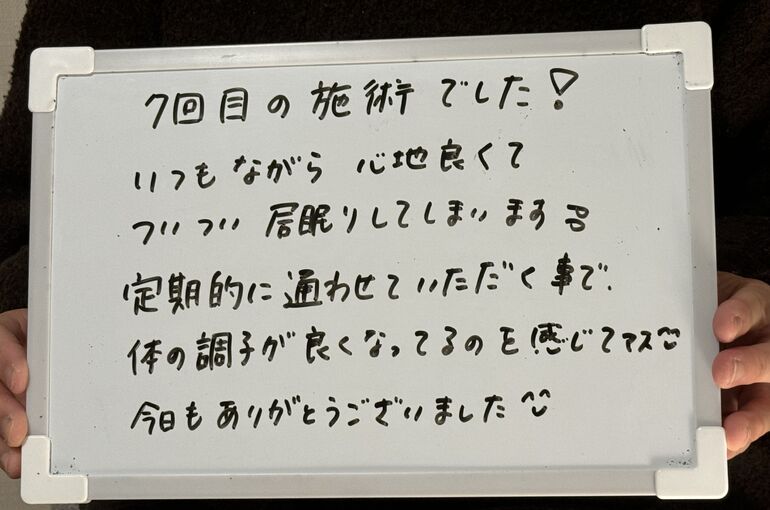 7回目の施術でした!
いつもながら 心地良くて
ついつい 居眠りしてしまいます
定期的に通わせていただく事で、
体の調子が良くなってるのを感じてマス
今日もありがとうございました^^